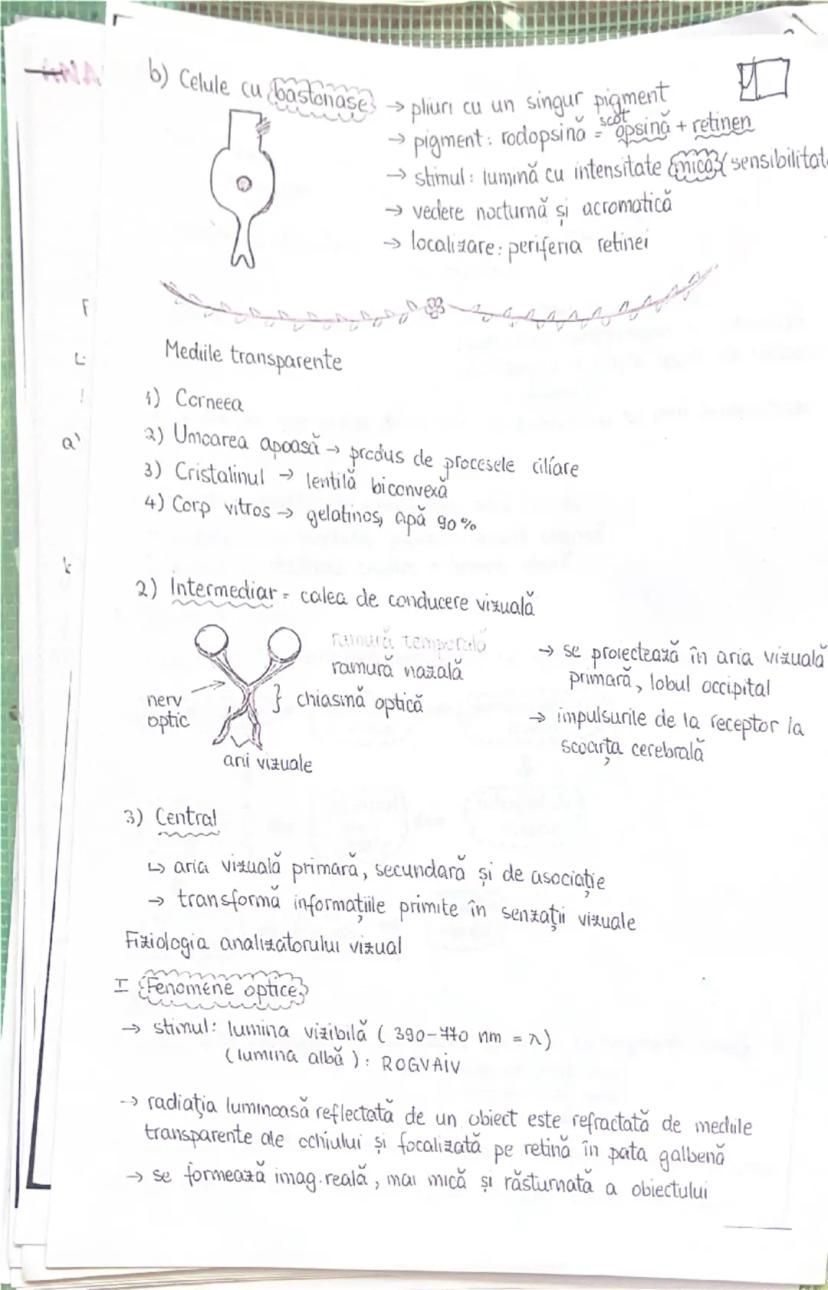 b) Celule cu bastonașe
→ pliuri cu un singur pigment
→ pigment: rodopsină = scotopsină + retinen
→ stimul: lumină cu intensitate mică (sensibilitate
→ vedere nocturnă și acromatică
→ localizare: periferia retinei
Mediile transparente
1) Corneea
2) Umoarea apoasă → produs de procesele ciliare
3) Cristalinul → lentilă biconvexă
4) Corp vitros → gelatinos, apă 90%
2) Intermediar = calea de conducere vizuală
ramură temporală
ramură nazală
} chiasmă optică
nerv
optic
arii vizuale
→ se proiectează în aria vizuală
primară, lobul occipital
→ impulsurile de la receptor la
scoarța cerebrală
3) Central
↳ aria vizuală primară, secundară și de asociație
→ transformă informațiile primite în senzații vizuale
Fiziologia analizatorului vizual
I Fenomene optice
→ stimul: lumina vizibilă (390-770 nm = λ)
(lumina albă): ROGVAIV
→ radiația luminoasă reflectată de un obiect este refractată de mediile
transparente ale ochiului și focalizată pe retină în pata galbenă
→ se formează imag. reală, mai mică și răsturnată a obiectului